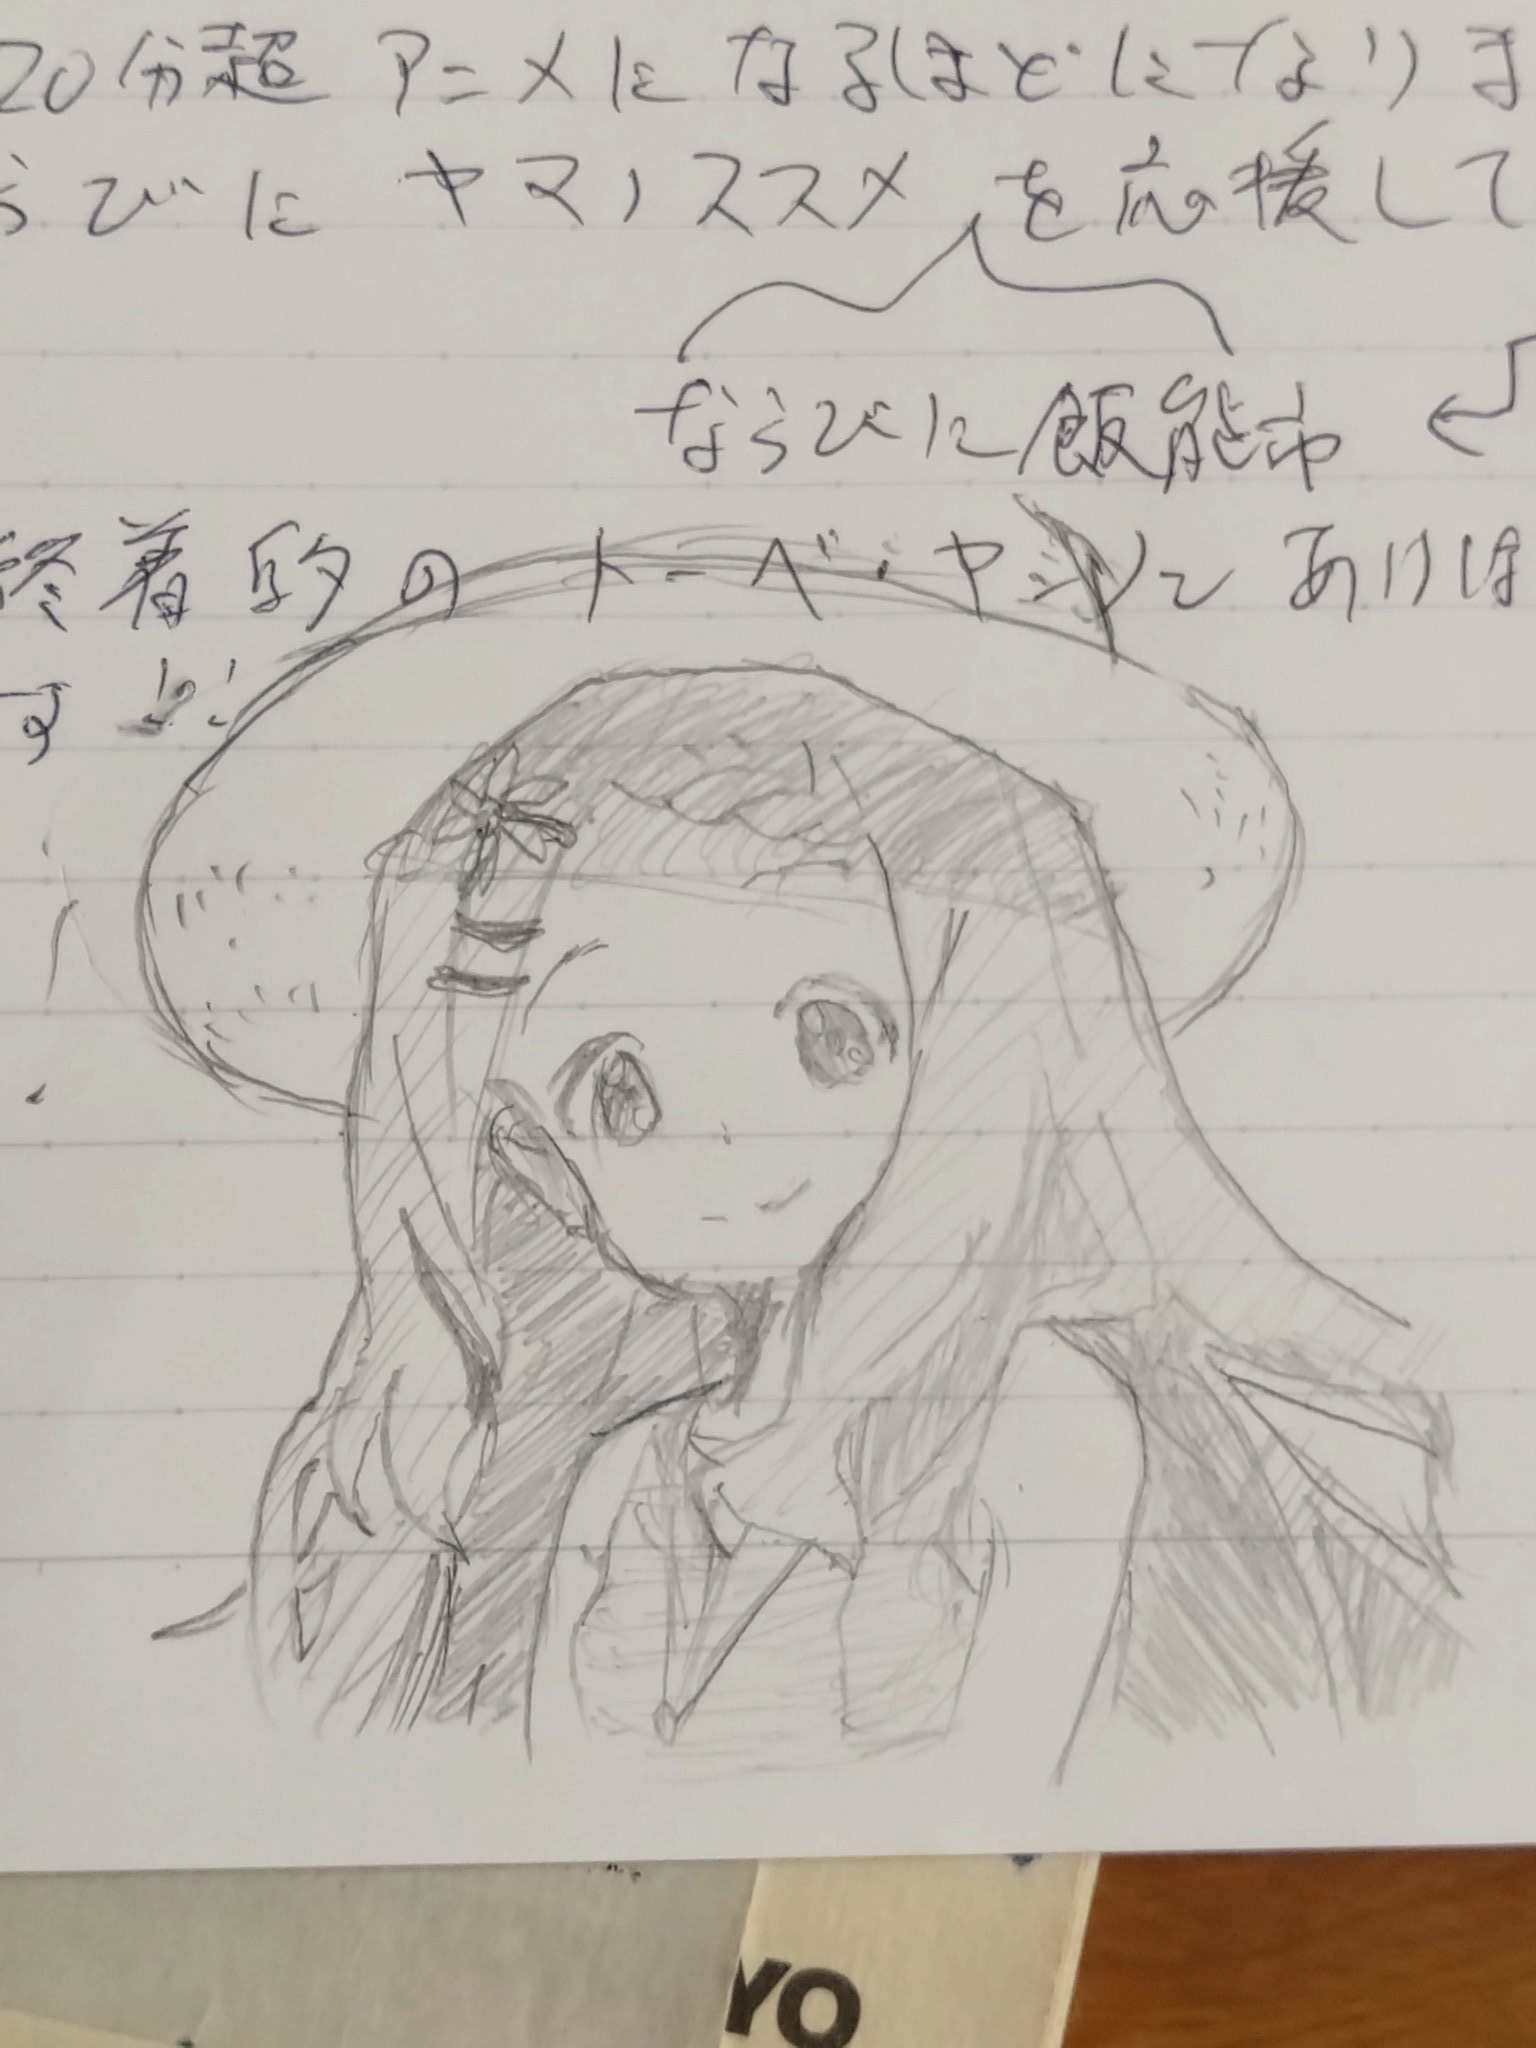 20分超 アニメになるほどになりま
らびに ヤマノススメ を応援して
ならびに飯能市
終着駅のトーベ・ヤンソン あけぼ
す
YO